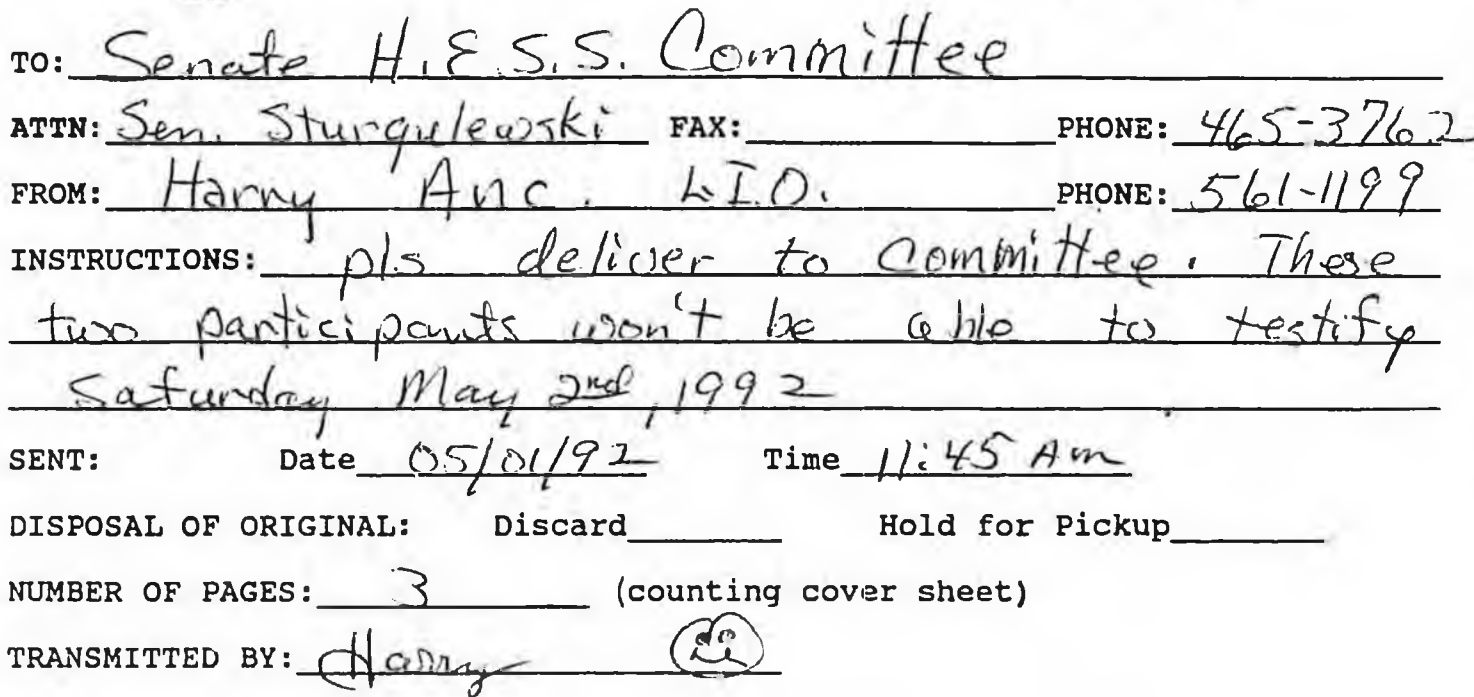 TO: Senate H.E.S.S. Committee
ATTN: Sen. Sturgulewski FAX: PHONE: 465-3762
FROM: Harry Anc. L.I.O. PHONE: 561-1199
INSTRUCTIONS: pls deliver to Committee. These
two participants won't be able to testify
Saturday May 2nd, 1992
SENT: Date 05/01/92 Time 11:45 Am
DISPOSAL OF ORIGINAL: Discard Hold for Pickup
NUMBER OF PAGES: 3 (counting cover sheet)
TRANSMITTED BY: Harry